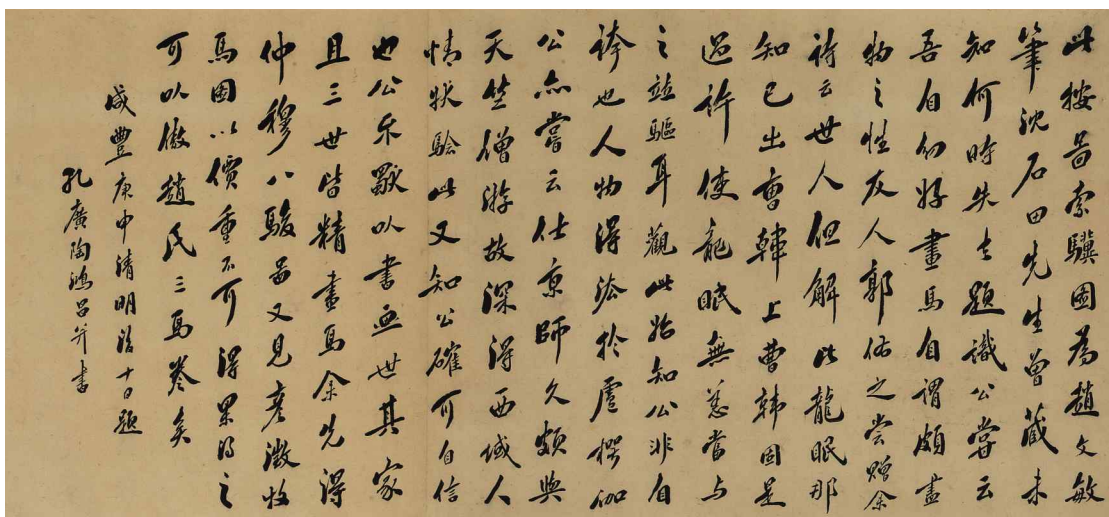 此按啚索驥圖為趙文敏
筆沈石田先生曾藏未
知何時失去題識公嘗云
吾自幼好畫馬自謂頗盡
物之性友人郭佑之嘗贈余
詩云世人但解比龍眠那
知已出曹韓上曹韓固是
過許使龍眠無恙當与
之竝驅耳觀此始知公非自
誇也人物得法於盧楞伽
公亦嘗云仕京師久頗與
天竺僧游故深得西域人
情狀驗此又知公確可自信
也公不獨以書畫世其家
且三世皆精畫馬余先得
仲穆八駿啚又見彥徵牧
馬圖以價重不可得果得之
可以傲趙氏三馬卷矣
咸豐庚申清明後十日題
孔廣陶鴻昌并書